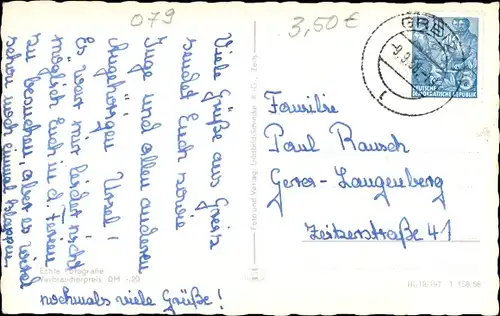 079
3,50€
GREIZ
DEUTSCHE
DEMOKRATISCHE REPUBLIK
5
Viele Grüße aus Greiz
sendet Euch sowie
Inge und allen anderen
Angehörigen Ursel!
Es war mir leider nicht
möglich Euch in d. Ferien
zu besuchen, aber es wird
schon noch einmal klappen.
nochmals viele Grüße!
Familie
Paul Rausch
Gera-Langenberg
Zeitzerstraße 41
Echte Fotografie
Verbraucherpreis DM -,20
Foto und Verlag:
III/18/197 1 158,56